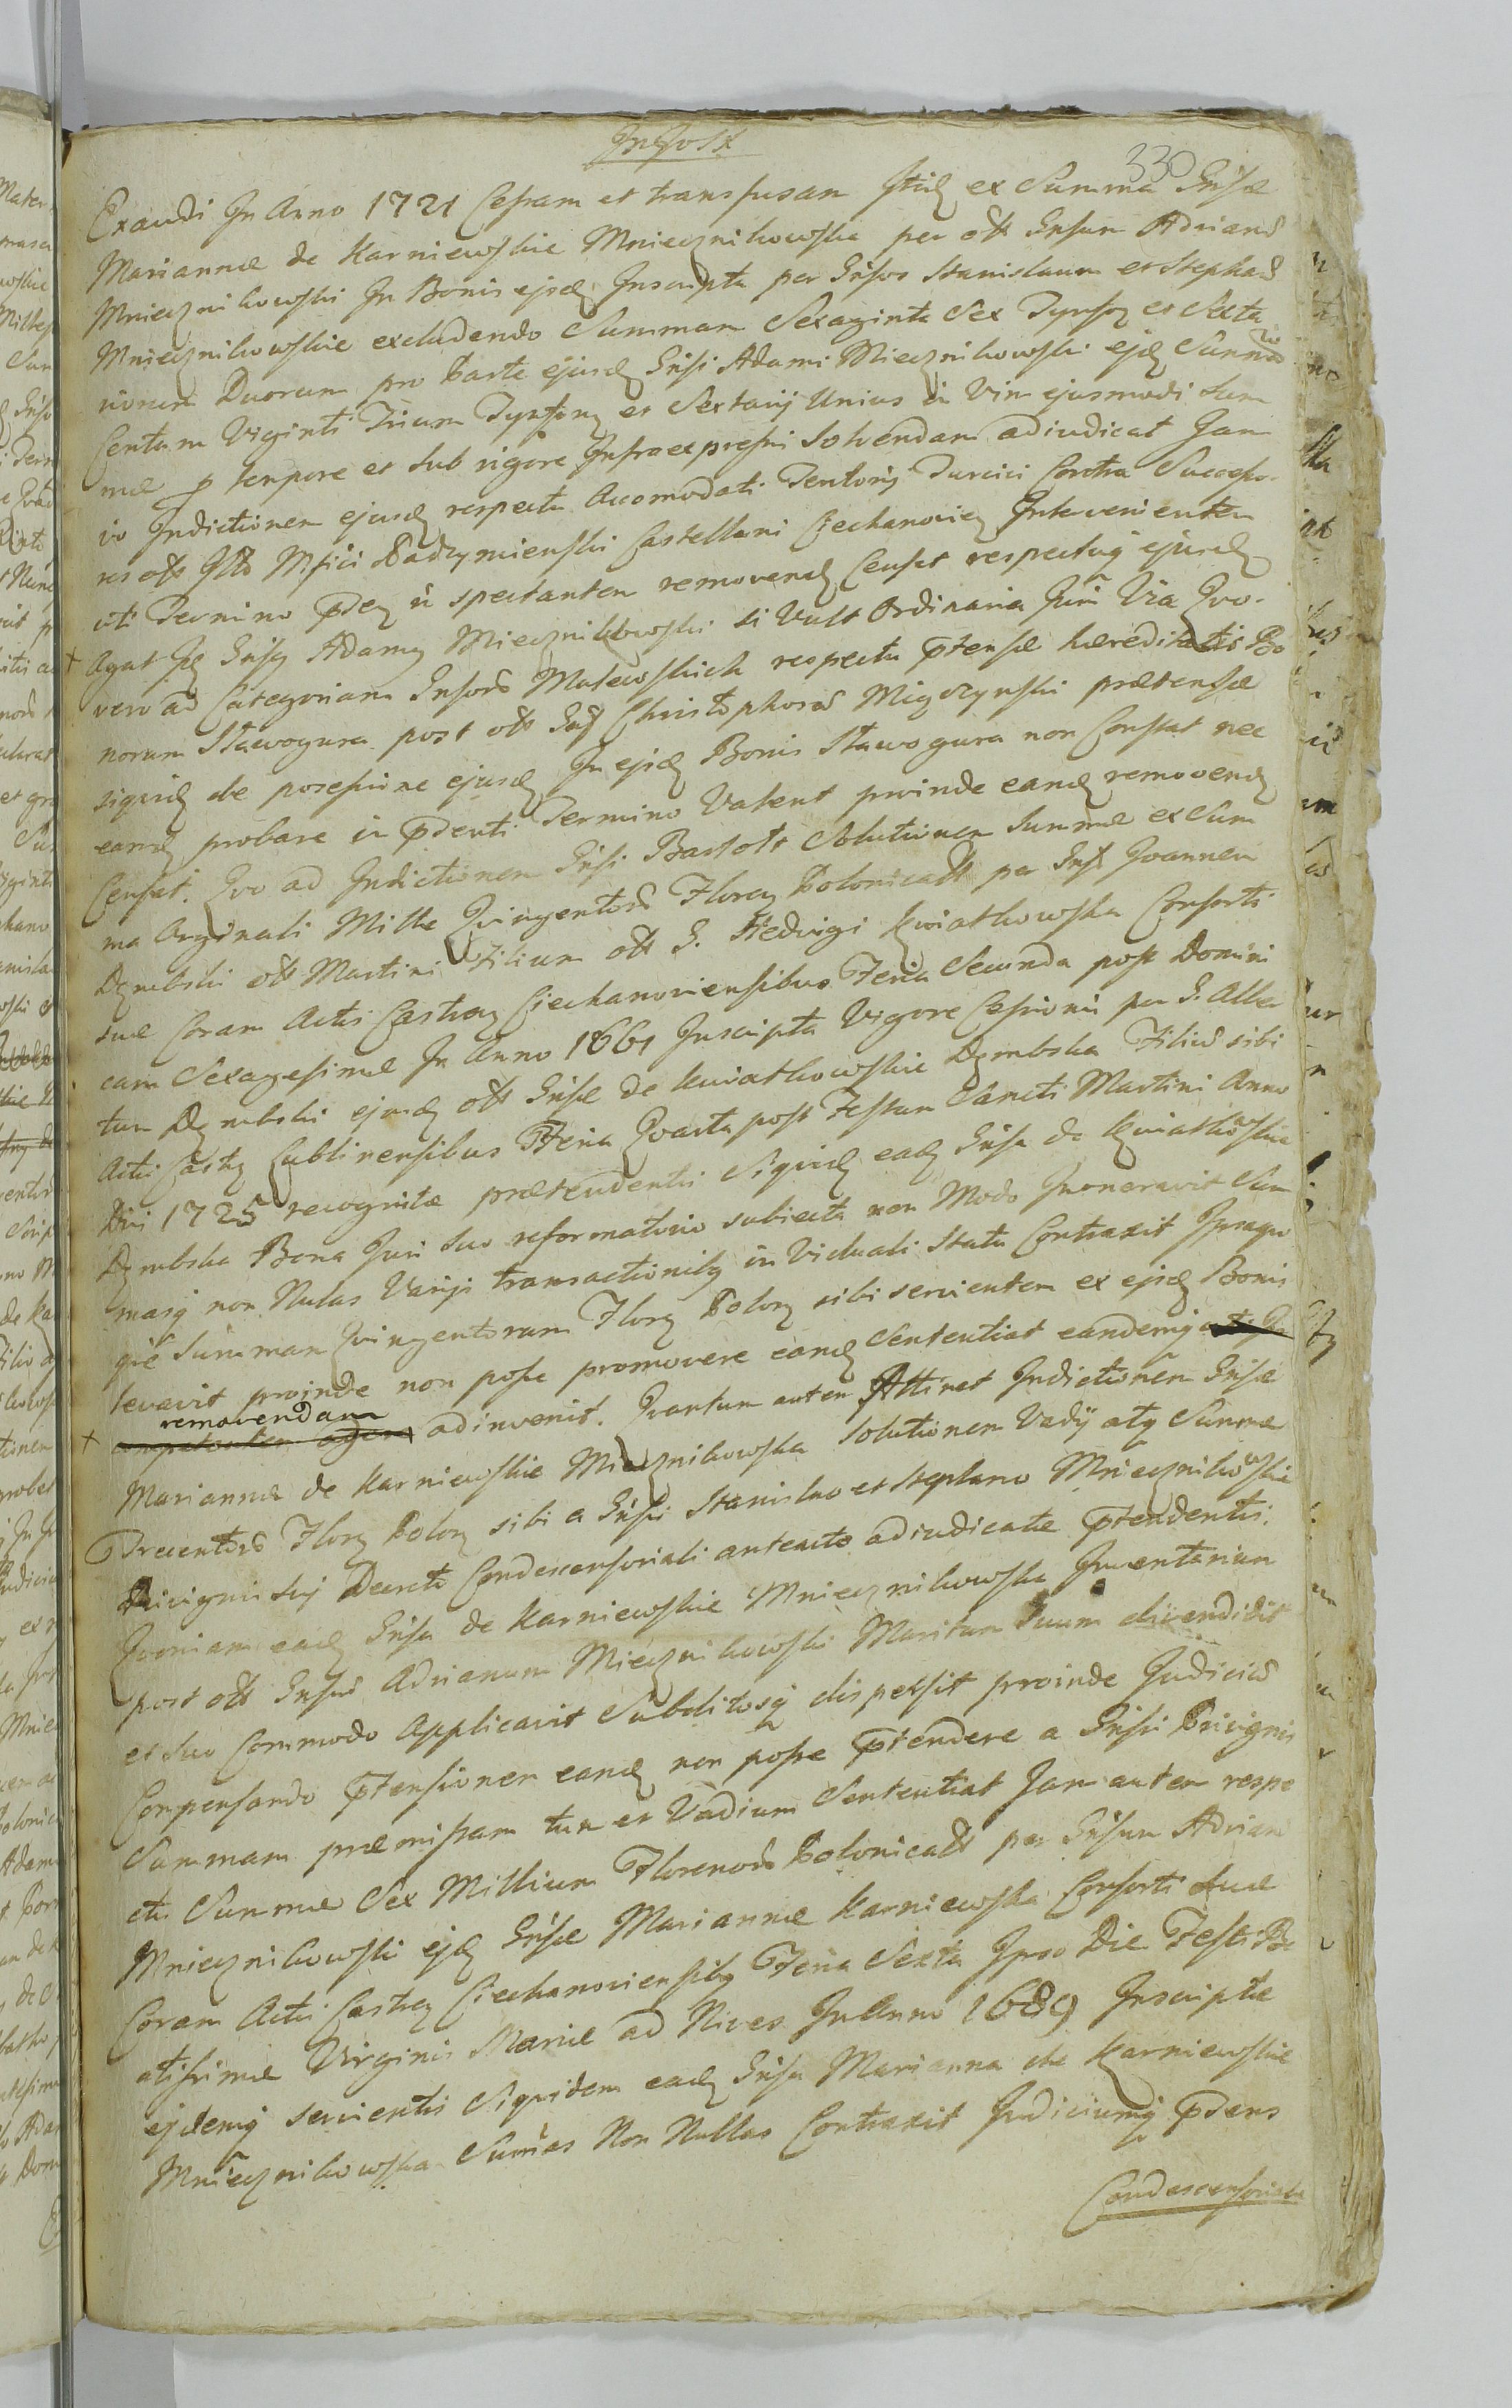 330
Exaudi In Anno 1721 Cessam et transfusam Itid ex Summa Gnsæ
Mariannæ de Karniewskie Mnieznikowska per oltt Gnsum Adrianū
Mnieznikowski In Bonis ejsd Inscripta per Gnsos Stanislaum et Stephanū
Mnieznikowskie excludendo Summam Sexaginta Sex Tynfoꝝ et Sexta
riorum Duorum pro Parte ejusd Gnsi Adami Mieznikowski ejsd Summæ
Centum Viginti Trium Tynfoꝝ et Sextarij Unius in Vim ejusmodi Sum
mæ p tempore et sub rigore Infraexpressi solvendam adiudicat Jam
vo Indictionem ejusd respectu Acomodati Tentorij Turcici Contra Successo
res oltt Mfici Radzymienski Castellani Ciechanovien Intervenientem
uti Termino pden n spectantem removend Censet respectuq ejusd
+ Agat Gnsq Adamq Mieznikowski si Vult Ordinaria Juri Via Quo
vero ad Categoriam Gnsorū Matewskich respectu ptensæ hæreditatis Bo
norum Stawogura post oltt Gnsū Christophorū Migdzynski prætensæ
siquid de possessione ejusd In ejsd Bonis Stawogura non Constat nec
eand probare in pdenti Termino Valent proinde eand removend
Censet. Quo ad Indictionem Gnsi Bartolt Solutionem Summæ ex Sum
ma Orginali Mille Quingentorū Floreꝝ Polonicaltt per Gnsū Joannem
Dembski oltt Martini Filium oltt G. Hedvigi Kwiatkowska Consorti
suæ Coram Actis Castreꝝ Ciechanoviensibus Feria Secunda post Domini
cam Sexagesimæ In Anno 1661 Inscripta Vigore Cessionis per G. Alber
tum Dembski ejusd oltt Gnsæ de Kwiatkowskie Dembska Filiū sibi
Actis Castꝝ Lublinensibus Feria Quarta post Festum Sancti Martini Anno
Dni 1725 recognitæ prætendentis Siquid ead Gnsa de Kwiatkowskie
Dembska Bona Juri suo reformatorio subiecta non Modo Inoneravit Sum
masq non Nulas Varijs transactionibq in Viduali statu Contraxit Ipsaqu
qve Summam Quingentorum Floꝝ Poloꝝ sibi servientem ex ejsd Bonis
levavit proinde non posse promovere eand Sententiat eandemq
+ removendam adinvenit. Quantum autem Attinet Indictionem Gnsæ
Mariannæ de Karniewskie Mieznikowska Solutionem Vadij atq Summæ
Trecentorū Floꝝ Poloꝝ sibi a Gnsis Stanislao et Stephano Mnieznikowskie
Privignis suis Decreto Condescensoriali anteacto adiudicatæ ptendentis.
Quoniam ead Gnsa de Karniewskie Mnieznikowska Inventarium
post oltt Gnsum Adrianum Mieznikowski Maritum Suum divendidit
et suo Commodo Applicavit Subditosq dispersit proinde Judiciū
Compensando ptensionem eand non posse ptendere a Gnsis Privignis
Summam præmissam tum et Vadium Sententiat Jam autem respe
ctu Summæ Sex Millium Florenorū Polonicaltt per Gnsum Adrianū
Mnieznikowski ejsd Gnsæ Mariannæ Karniewska Consorti suæ
Coram Actis Castreꝝ Ciechanoviensibq Feria Sexta Ipso Die Festi Be
atissimæ Virginis Mariæ ad Nives In Anno 1689 Inscriptæ
ejdemq servientis Siquidem ead Gnsa Marianna de Karniewskie
Mnieznikowska Sumas Non Nullas Contraxit Judiciumq pdens
Condescensoriale